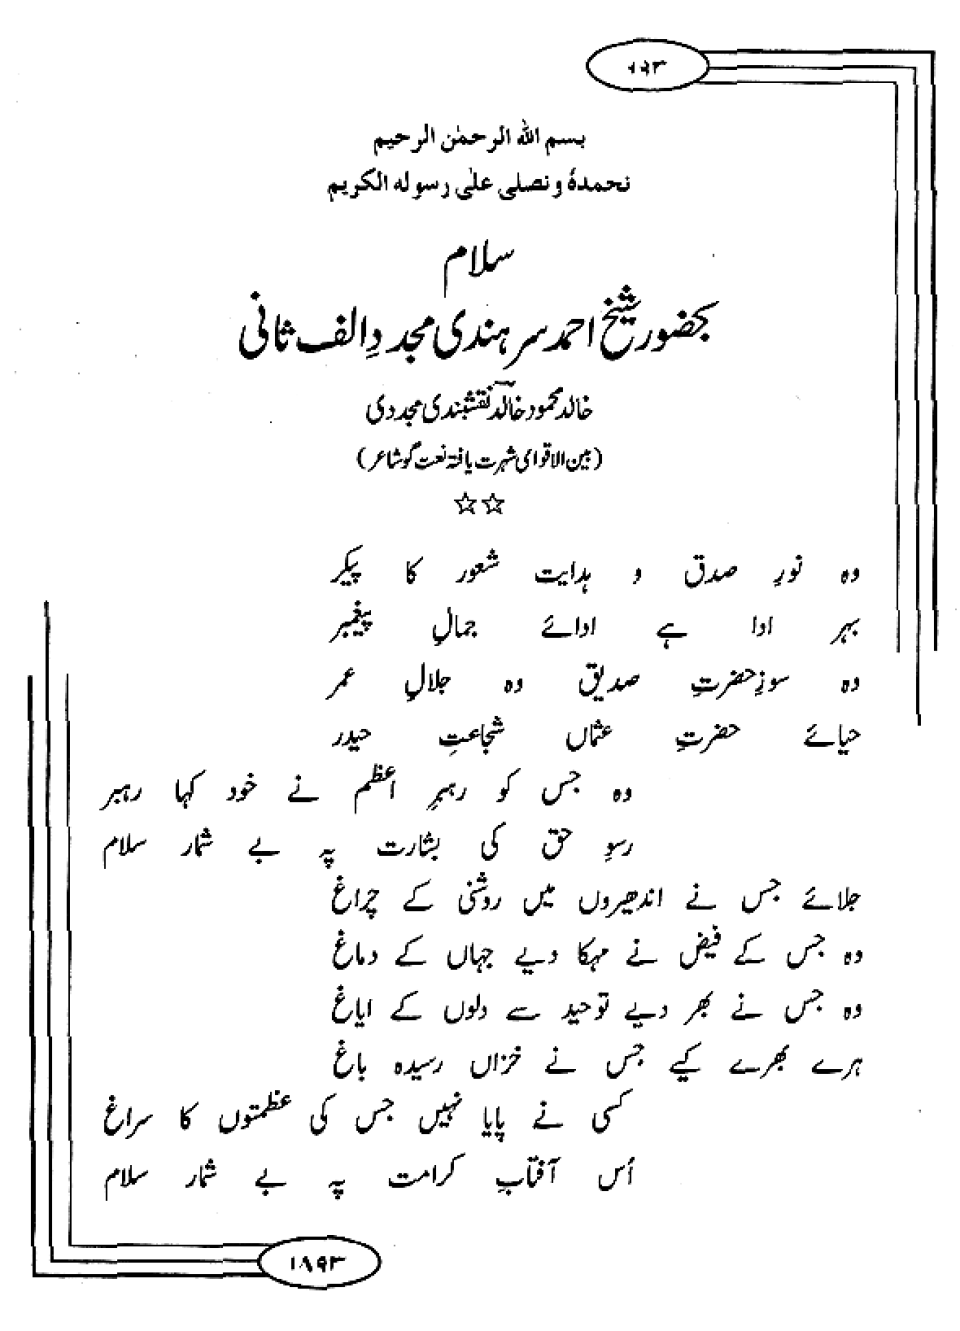 ۱۹۳
بسم الله الرحمٰن الرحیم
نحمدہٗ و نصلی علٰی رسولہ الکریم
سلام
بحضور شیخ احمد سرہندی مجددِ الف ثانی
خالد محمود خالدؔ نقشبندی مجددی
(بین الاقوامی شہرت یافتہ نعت گو شاعر)
☆☆
وہ نورِ صدق و ہدایت شعور کا پیکر
بہر ادا ہے ادائے جمالِ پیغمبر
وہ سوزِ حضرتِ صدیق وہ جلالِ عمر
حیائے حضرتِ عثماں شجاعتِ حیدر
وہ جس کو رہبرِ اعظم نے خود کہا رہبر
رسوِ حق کی بشارت پہ بے شمار سلام
جلائے جس نے اندھیروں میں روشنی کے چراغ
وہ جس کے فیض نے مہکا دیے جہاں کے دماغ
وہ جس نے بھر دیے توحید سے دلوں کے ایاغ
ہرے بھرے کیے جس نے خزاں رسیدہ باغ
کسی نے پایا نہیں جس کی عظمتوں کا سراغ
اُس آفتابِ کرامت پہ بے شمار سلام
۱۸۹۳